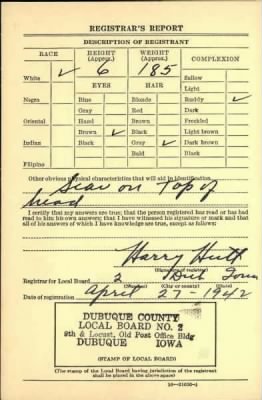 REGISTRAR'S REPORT
DESCRIPTION OF REGISTRANT
RACE HEIGHT (Approx.) WEIGHT (Approx.) COMPLEXION
White ✓ 6 185 Sallow
Light
EYES HAIR
Negro Blue Blonde Ruddy ✓
Gray Red Dark
Oriental Hazel Brown Freckled
Brown ✓ Black Light brown
Indian Black Gray ✓ Dark brown
Bald Black
Filipino
Other obvious physical characteristics that will aid in identification
Scar on top of
head
I certify that my answers are true; that the person registered has read or has had
read to him his own answers; that I have witnessed his signature or mark and that
all of his answers of which I have knowledge are true, except as follows:
Harry
(Signature of registrar)
Registrar for Local Board 2 Dub Iowa
(Number) (City or county) (State)
Date of registration April 27-1942
DUBUQUE COUNTY
LOCAL BOARD NO. 2
9th & Locust, Old Post Office Bldg
DUBUQUE IOWA
(STAMP OF LOCAL BOARD)
(The stamp of the Local Board having jurisdiction of the registrant
shall be placed in the above space)